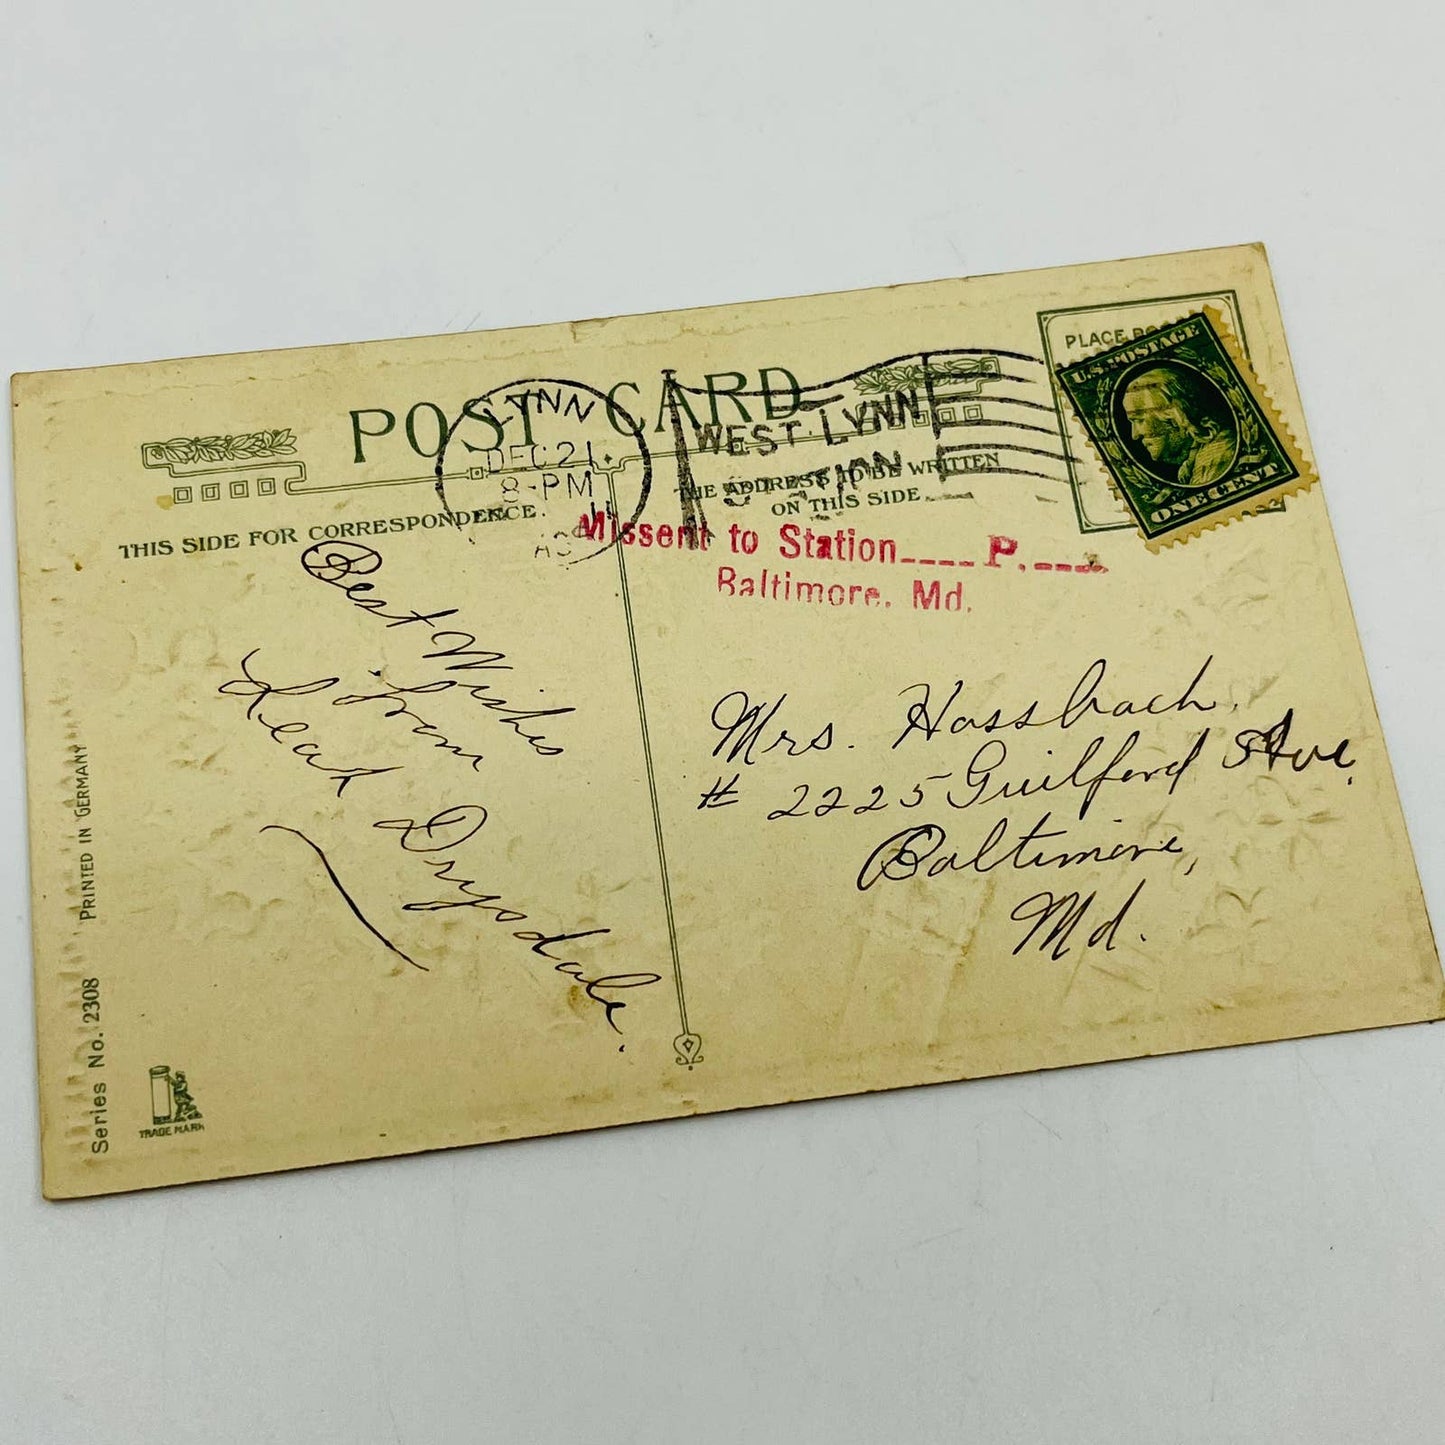 POST CARD
THIS SIDE FOR CORRESPONDENCE.
THE ADDRESS TO BE WRITTEN
ON THIS SIDE
LYNN
DEC 21
8-PM
11
WEST LYNN
PLACE
U.S. POSTAGE
ONE CENT
Missent to Station P.
Baltimore, Md.
Best Wishes
from
Leah Drysdale.
Mrs. Hassbach.
# 2225 Guilford Ave.
Baltimore,
Md.
PRINTED IN GERMANY
Series No. 2308
TRADE MARK